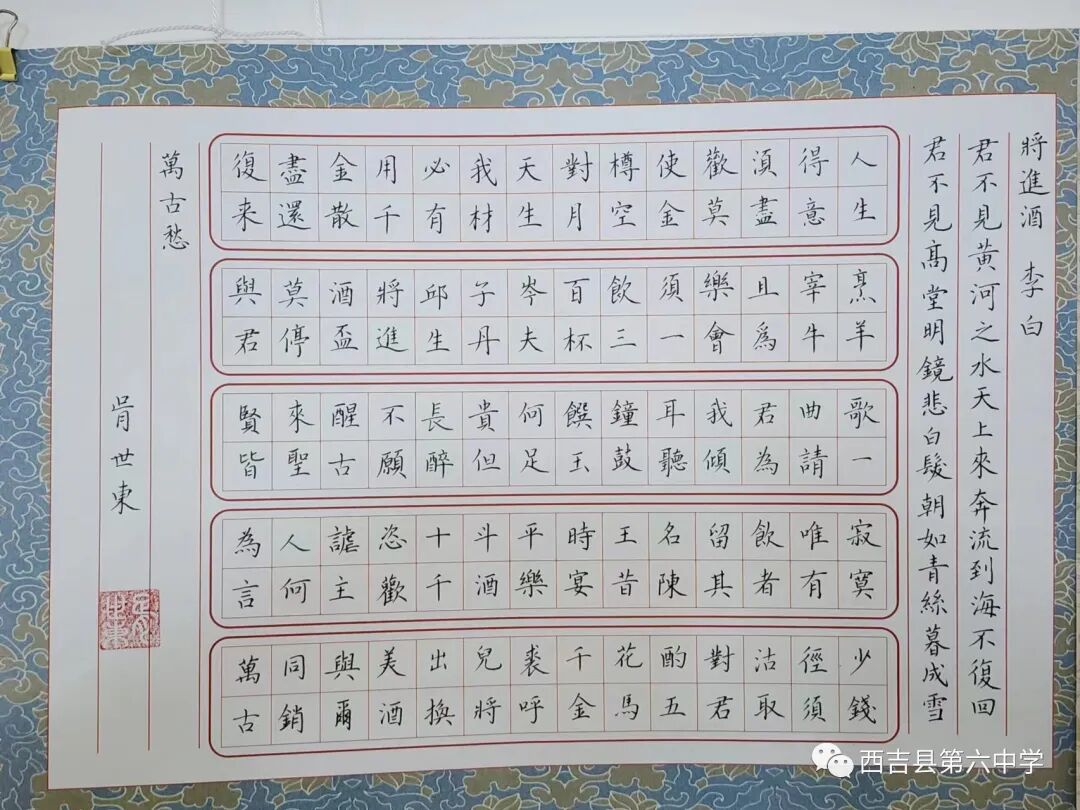 將進酒 李白
君不見黃河之水天上來奔流到海不復回
君不見高堂明鏡悲白髮朝如青絲暮成雪
人生得意須盡歡莫使金樽空對月天生我材必有用千金散盡還復来
烹羊宰牛且爲樂會須一飲三百杯岑夫子丹邱生將進酒盃莫停與君
歌一曲請君為我傾耳聽鐘鼓饌玉何足貴但長醉不願醒古來聖賢皆
寂寞唯有飲者留其名陳王昔時宴平樂斗酒十千恣歡謔主人何為言
少錢徑須沽取對君酌五花馬千金裘呼兒將出換美酒與爾同銷萬古
萬古愁
世東
西吉县第六中学